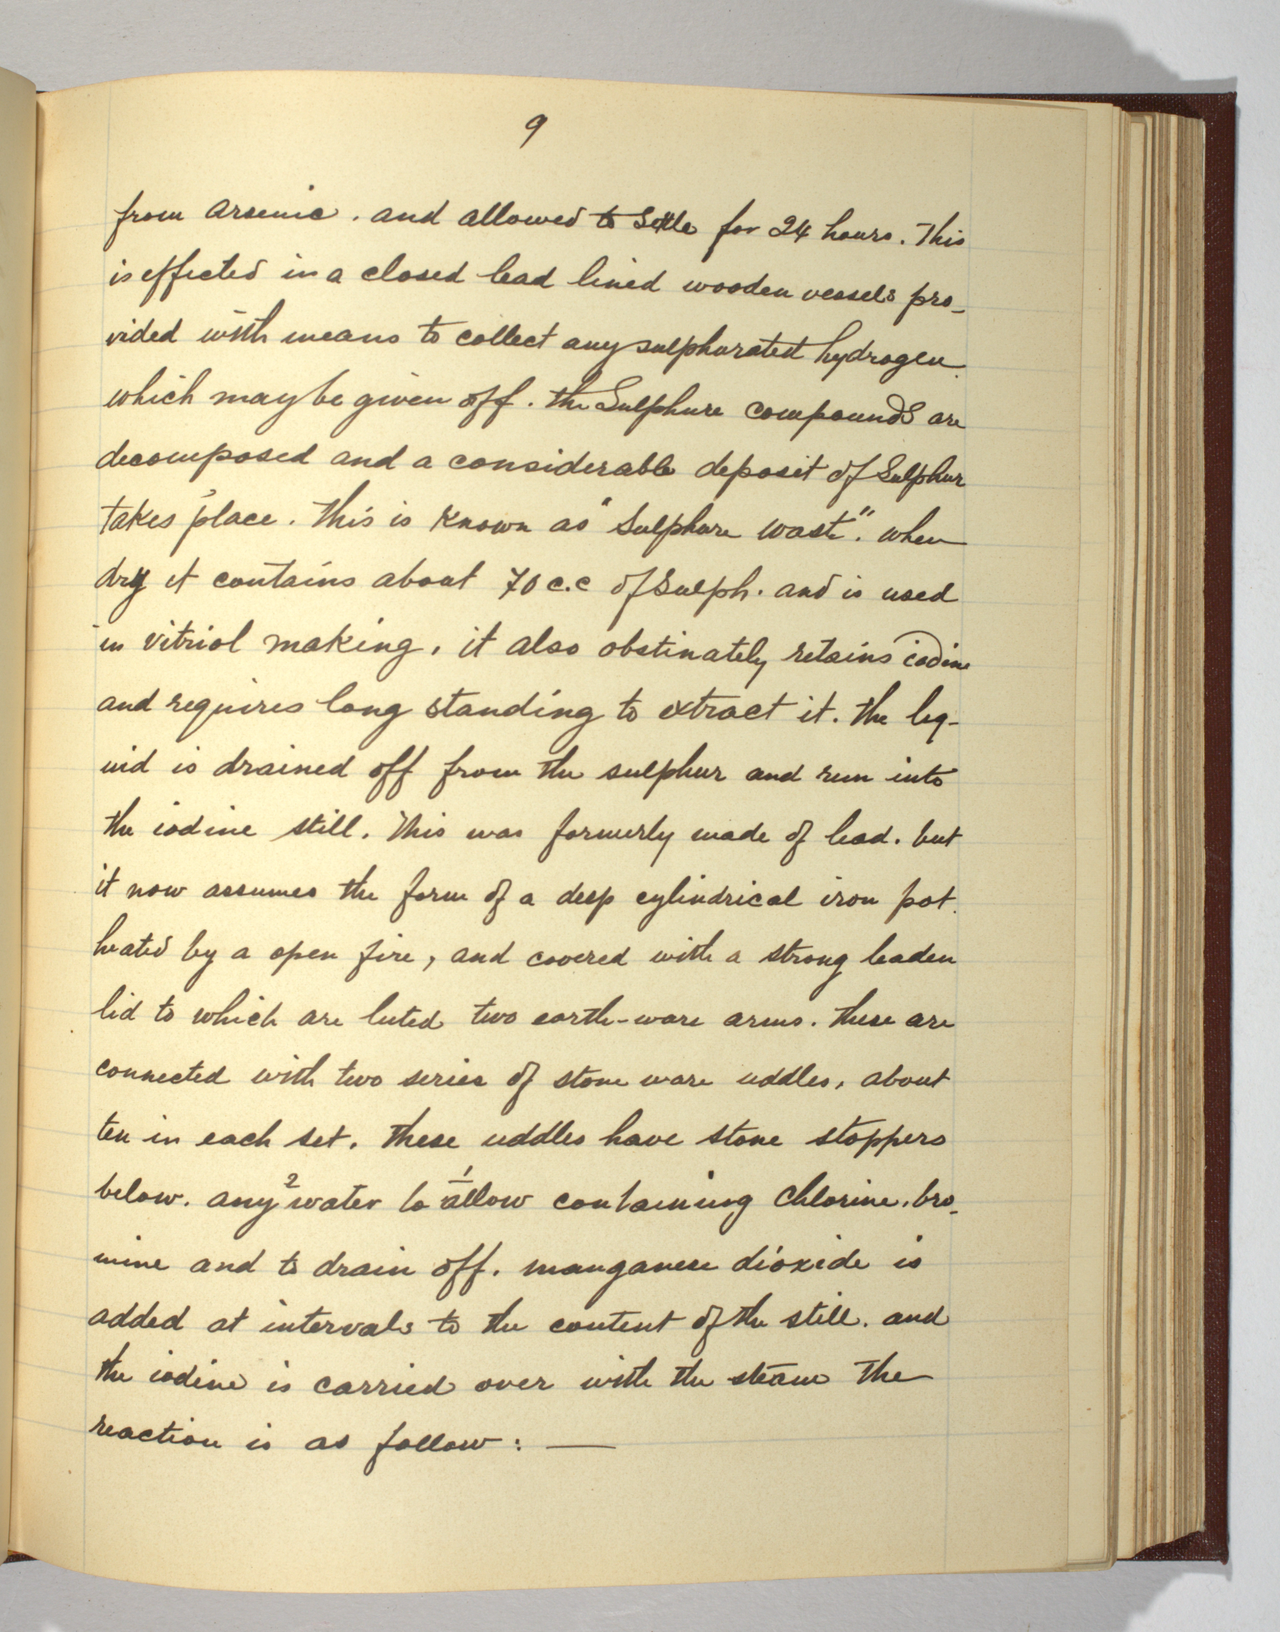 9
from arsenic. and allowed to settle for 24 hours. This
is effected in a closed lead lined wooden vessels pro-
vided with means to collect any sulphurated hydrogen
which may be given off. the Sulphure compounds are
decomposed and a considerable deposit of Sulphur
takes place. This is known as "Sulphure wast". when
dry it contains about 70 c.c of Sulph. and is used
in vitriol making, it also obstinately retains iodine
and requires long standing to extract it. The liq-
uid is drained off from the sulphur and run into
the iodine still. This was formerly made of lead. but
it now assumes the form of a deep cylindrical iron pot.
heated by a open fire, and covered with a strong leaden
lid to which are luted two earth-ware arms. These are
connected with two series of stone ware uddles, about
ten in each set. These uddles have stone stoppers
below. any 2 water to 1 allow containing Chlorine, bro-
mine and to drain off. manganese dioxide is
added at intervals to the content of the still. and
the iodine is carried over with the steam The
reaction is as follow: —